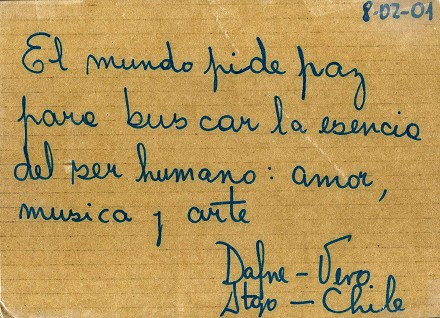 8-02-01
El mundo pide paz
para buscar la esencia
del ser humano: amor,
musica y arte
Dafne - Vero
Stgo - Chile